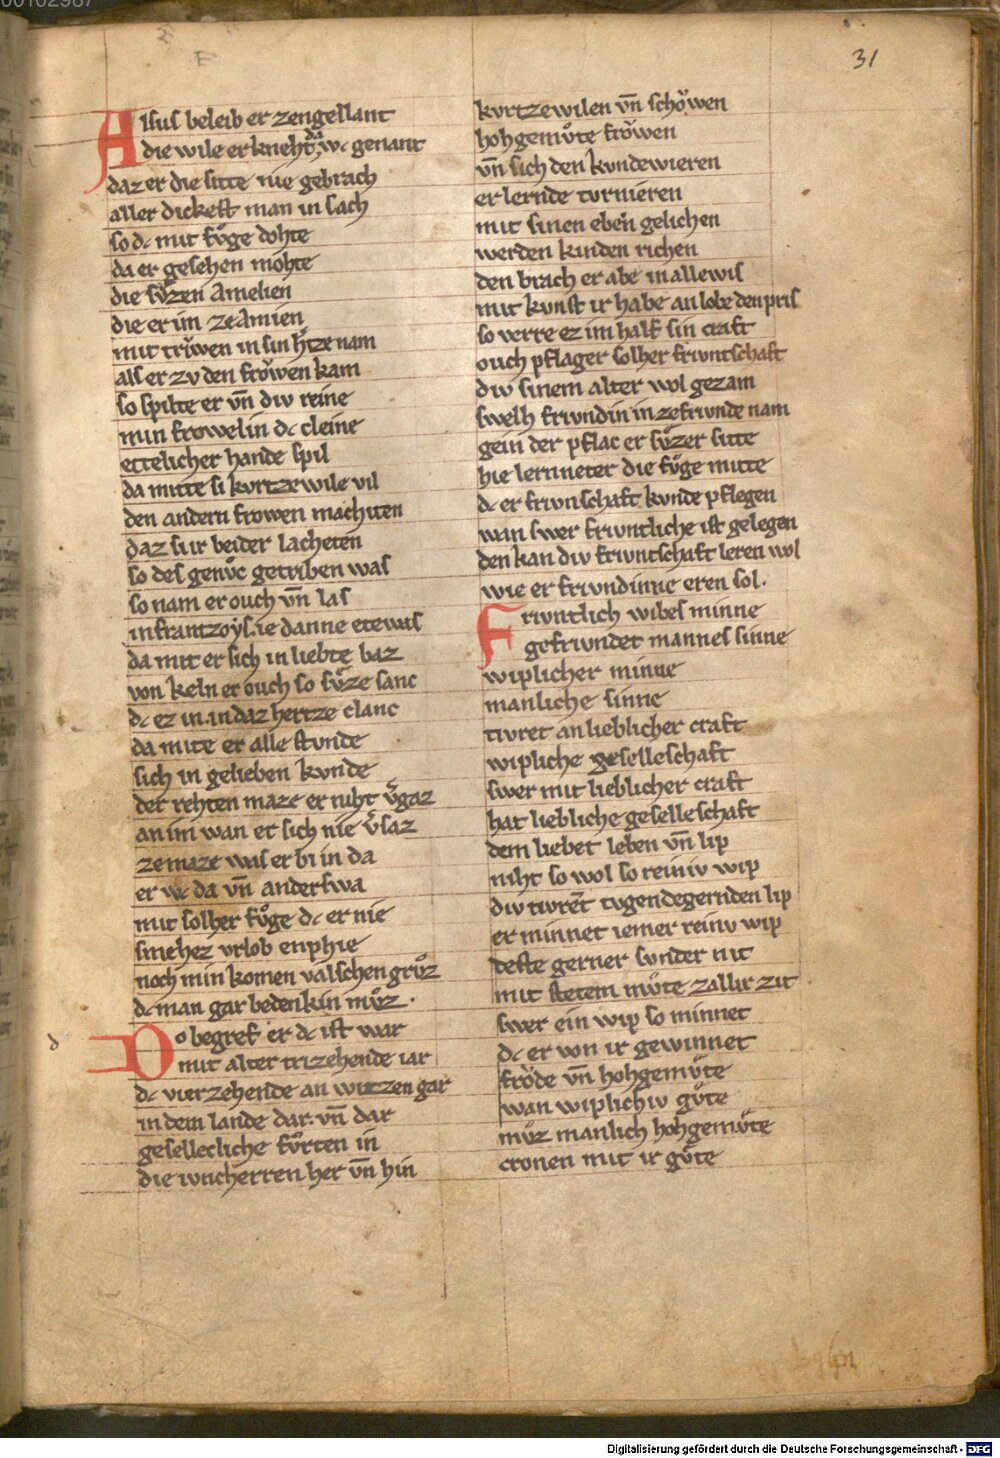 31
Alsus beleib er zengellant
die wile er kneht da wc genant
daz er die sitte nie gebrach
aller dickest man in sach
so dc mit fuͦge dohte
da er gesehen mohte
die suͤzen Amelien
die er im ze Amien
mit trv̍wen in sin htze nam
als er zv den frov̍wen kam
so spilte er vn̄ div reine
min frowelin dc cleine
ettelicher hande spil
da mitte si kvrtzewile vil
den andern frowen machiten
daz si ir beider lacheten
so des genuͦc getriben was
so nam er ouch vn̄ las
in frantzoys ie danne etewas
da mit er sich in liebte baz
von keln er ouch so suͤze sanc
dc ez in in daz hertze clanc
da mite er alle stvnde
sich in gelieben kvnde
der rehten maze er niht v̍gaz
an im wan er sich nie v̍saz
ze maze was er bi in da
er wc da vn̄ anderswa
mit solher fuͦge dc er nie
smehez vrlob enphie
noch min komen valschen gruͦz
dc man gar bedenkin muͦz .
d
Do begref er dc ist war
mit alter trizehende iar
dc vierzehende an witzen gar
in dem lande dar vn̄ dar
gesellecliche fuͦrten in
die ivncherren her vn̄ hin
kvrtzewilen vn̄ schoͮwen
hohgemuͦte froͮwen
vn̄ sich den kvndewieren
er lernde tvrnieren
mit sinen eben gelichen
werden kinden richen
den brach er abe in allewis
mit kvnst ir habe an lobe den pris
so verre ez im half sin craft
ouch pflager solher frivntschaft
div sinem alter wol gezam
swelh frivndin in ze frivnde nam
gein der pflac er suͤzer sitte
hie lernneter die fuͦge mitte
dc er frivnschaft kvnde pflegen
wan swer frivntliche ist gelegen
den kan div frivntschaft leren wol
wie er frivndinne eren sol .
Frivntlich wibes minne
gefrivndet mannes sinne
wiplicher minne
manliche sinne
tivret an lieblicher craft
wipliche geselleschaft
swer mit lieblicher craft
hat liebliche geselleschaft
dem liebet leben vn̄ lip
niht so wol so reiniv wip
div tivret tvgende gernden lip
er minnet iemer reiniv wip
deste gerner svnder nit
mit stetem muͦte zallir zit
swer ein wip so minnet
dc er von ir gewinnet
froͮde vn̄ hohgemuͦte
wan wiplichiv guͤte
muͦz manlich hohgemuͦte
cronen mit ir guͤte
Digitalisierung gefördert durch die Deutsche Forschungsgemeinschaft - DFG